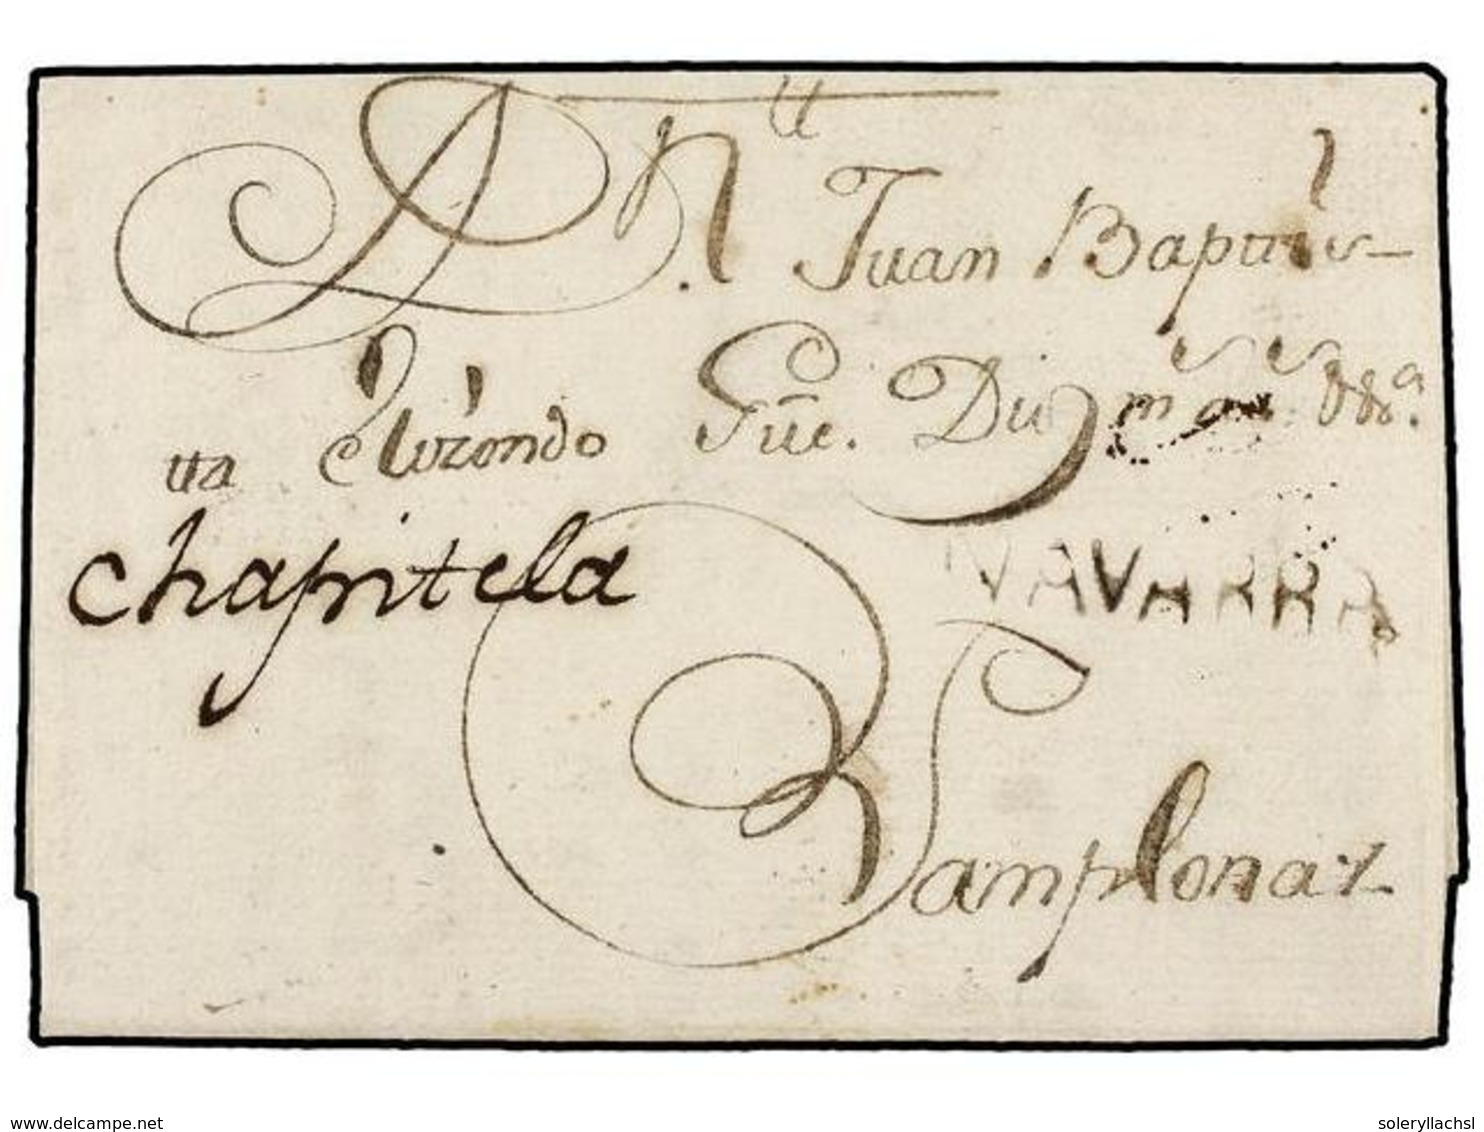 A Dn
Juan Baptis-
ta Elizondo Gue. Dios m. a.
chapitela
NAVARRA
Pamplona
www.delcampe.net
soleryllachsl